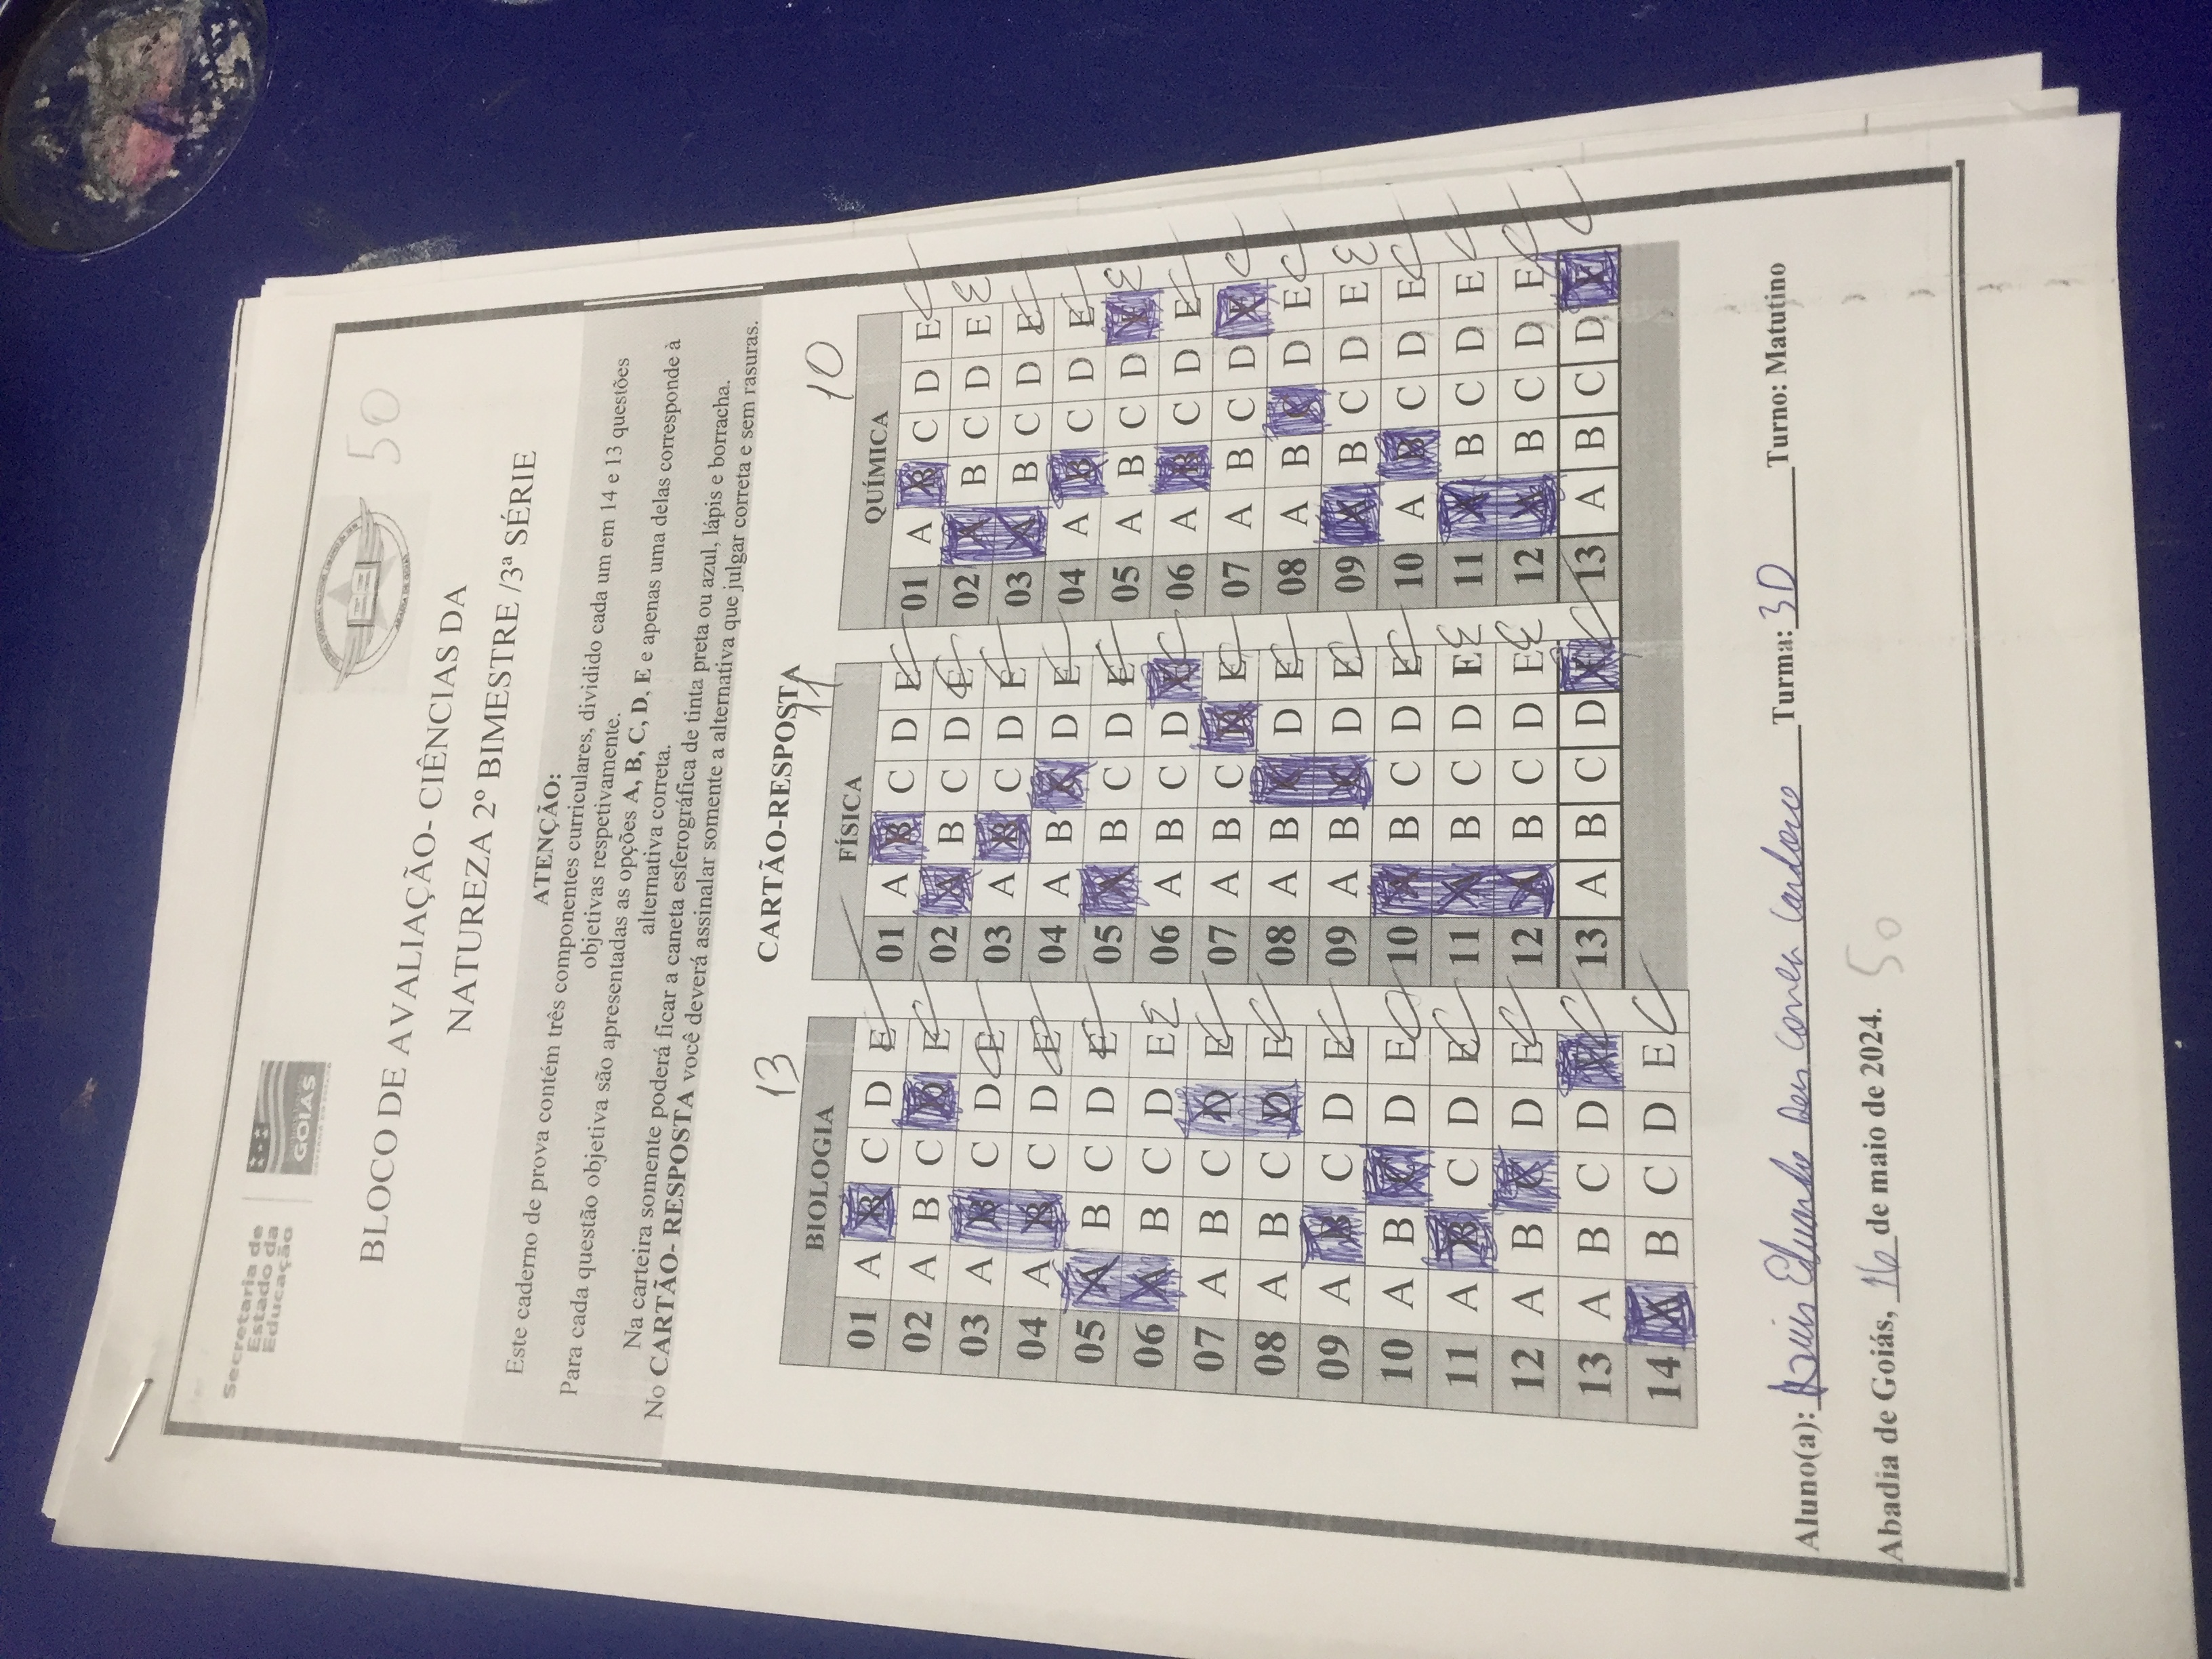 Secretaria de
Estado da
Educação
GOIÁS
ABADIA DE GOIÁS
50
BLOCO DE AVALIAÇÃO- CIÊNCIAS DA
NATUREZA 2º BIMESTRE /3ª SÉRIE
ATENÇÃO:
Este caderno de prova contém três componentes curriculares, dividido cada um em 14 e 13 questões
objetivas respetivamente.
Para cada questão objetiva são apresentadas as opções A, B, C, D, E e apenas uma delas corresponde à
alternativa correta.
Na carteira somente poderá ficar a caneta esferográfica de tinta preta ou azul, lápis e borracha.
No CARTÃO- RESPOSTA você deverá assinalar somente a alternativa que julgar correta e sem rasuras.
CARTÃO-RESPOSTA
13
BIOLOGIA
01 A B C D E
02 A B C D E C
03 A B C D E C
04 A B C D E C
05 A B C D E C
06 A B C D E E
07 A B C D E C
08 A B C D E C
09 A B C D E C
10 A B C D E C
11 A B C D E C
12 A B C D E C
13 A B C D E C
14 A B C D E C
11
FÍSICA
01 A B C D E C
02 A B C D E C
03 A B C D E C
04 A B C D E C
05 A B C D E C
06 A B C D E C
07 A B C D E C
08 A B C D E C
09 A B C D E C
10 A B C D E C
11 A B C D E E
12 A B C D E E
13 A B C D E C
10
QUÍMICA
01 A B C D E C
02 A B C D E E
03 A B C D E C
04 A B C D E C
05 A B C D E E
06 A B C D E C
07 A B C D E C
08 A B C D E C
09 A B C D E E
10 A B C D E C
11 A B C D E C
12 A B C D E C
13 A B C D E C
Aluno(a): Eduardo Cardoso Turma: 3D Turno: Matutino
Abadia de Goiás, 16 de maio de 2024. 50